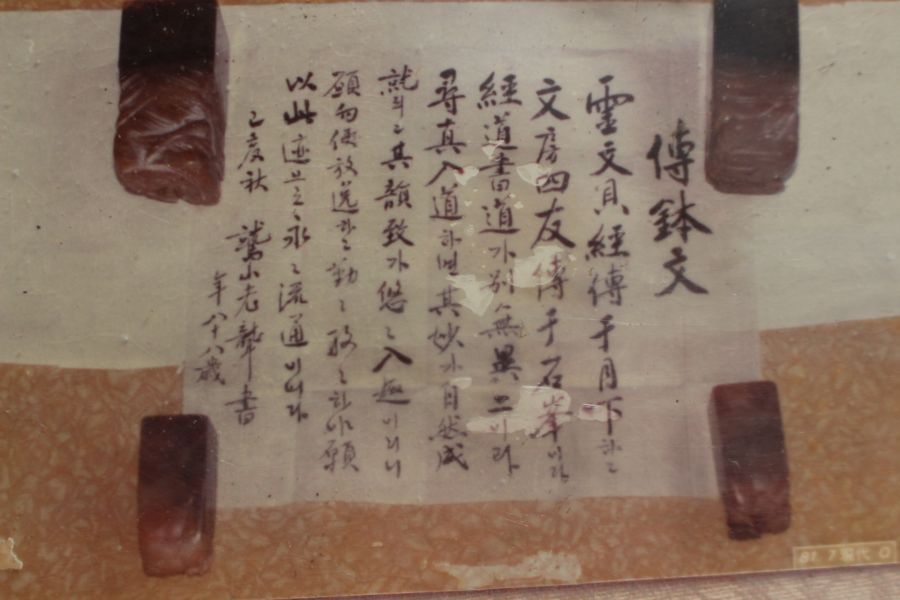 傳鉢文
靈文貝經傳于月下하고
文房四友傳于石峯이라
經道書道가別無異二이라
尋真入道하면其妙가自然成
就되고其韻致가悠々入이리니
願勿便放逸하고勤々孜々하야願
以此迹으로永々流通이니라
秋 鷲山老聾書
年八十八歲
81. 7 現代 O